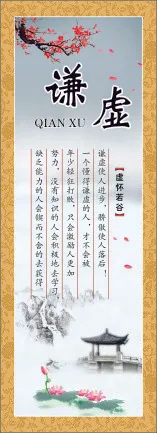 谦虚
QIAN XU
【虚怀若谷】
谦虚使人进步，骄傲使人落后！
一个懂得谦虚的人，才不会被
年少轻狂打败，只会激励人更加
努力，没有知识的人会积极地去学习，
缺乏能力的人会锲而不舍的去获得